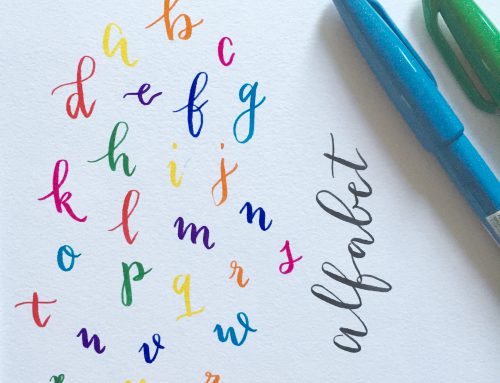 a b c
d e f g
h i j
k l m n
o p q r s
t u v w
alfabet